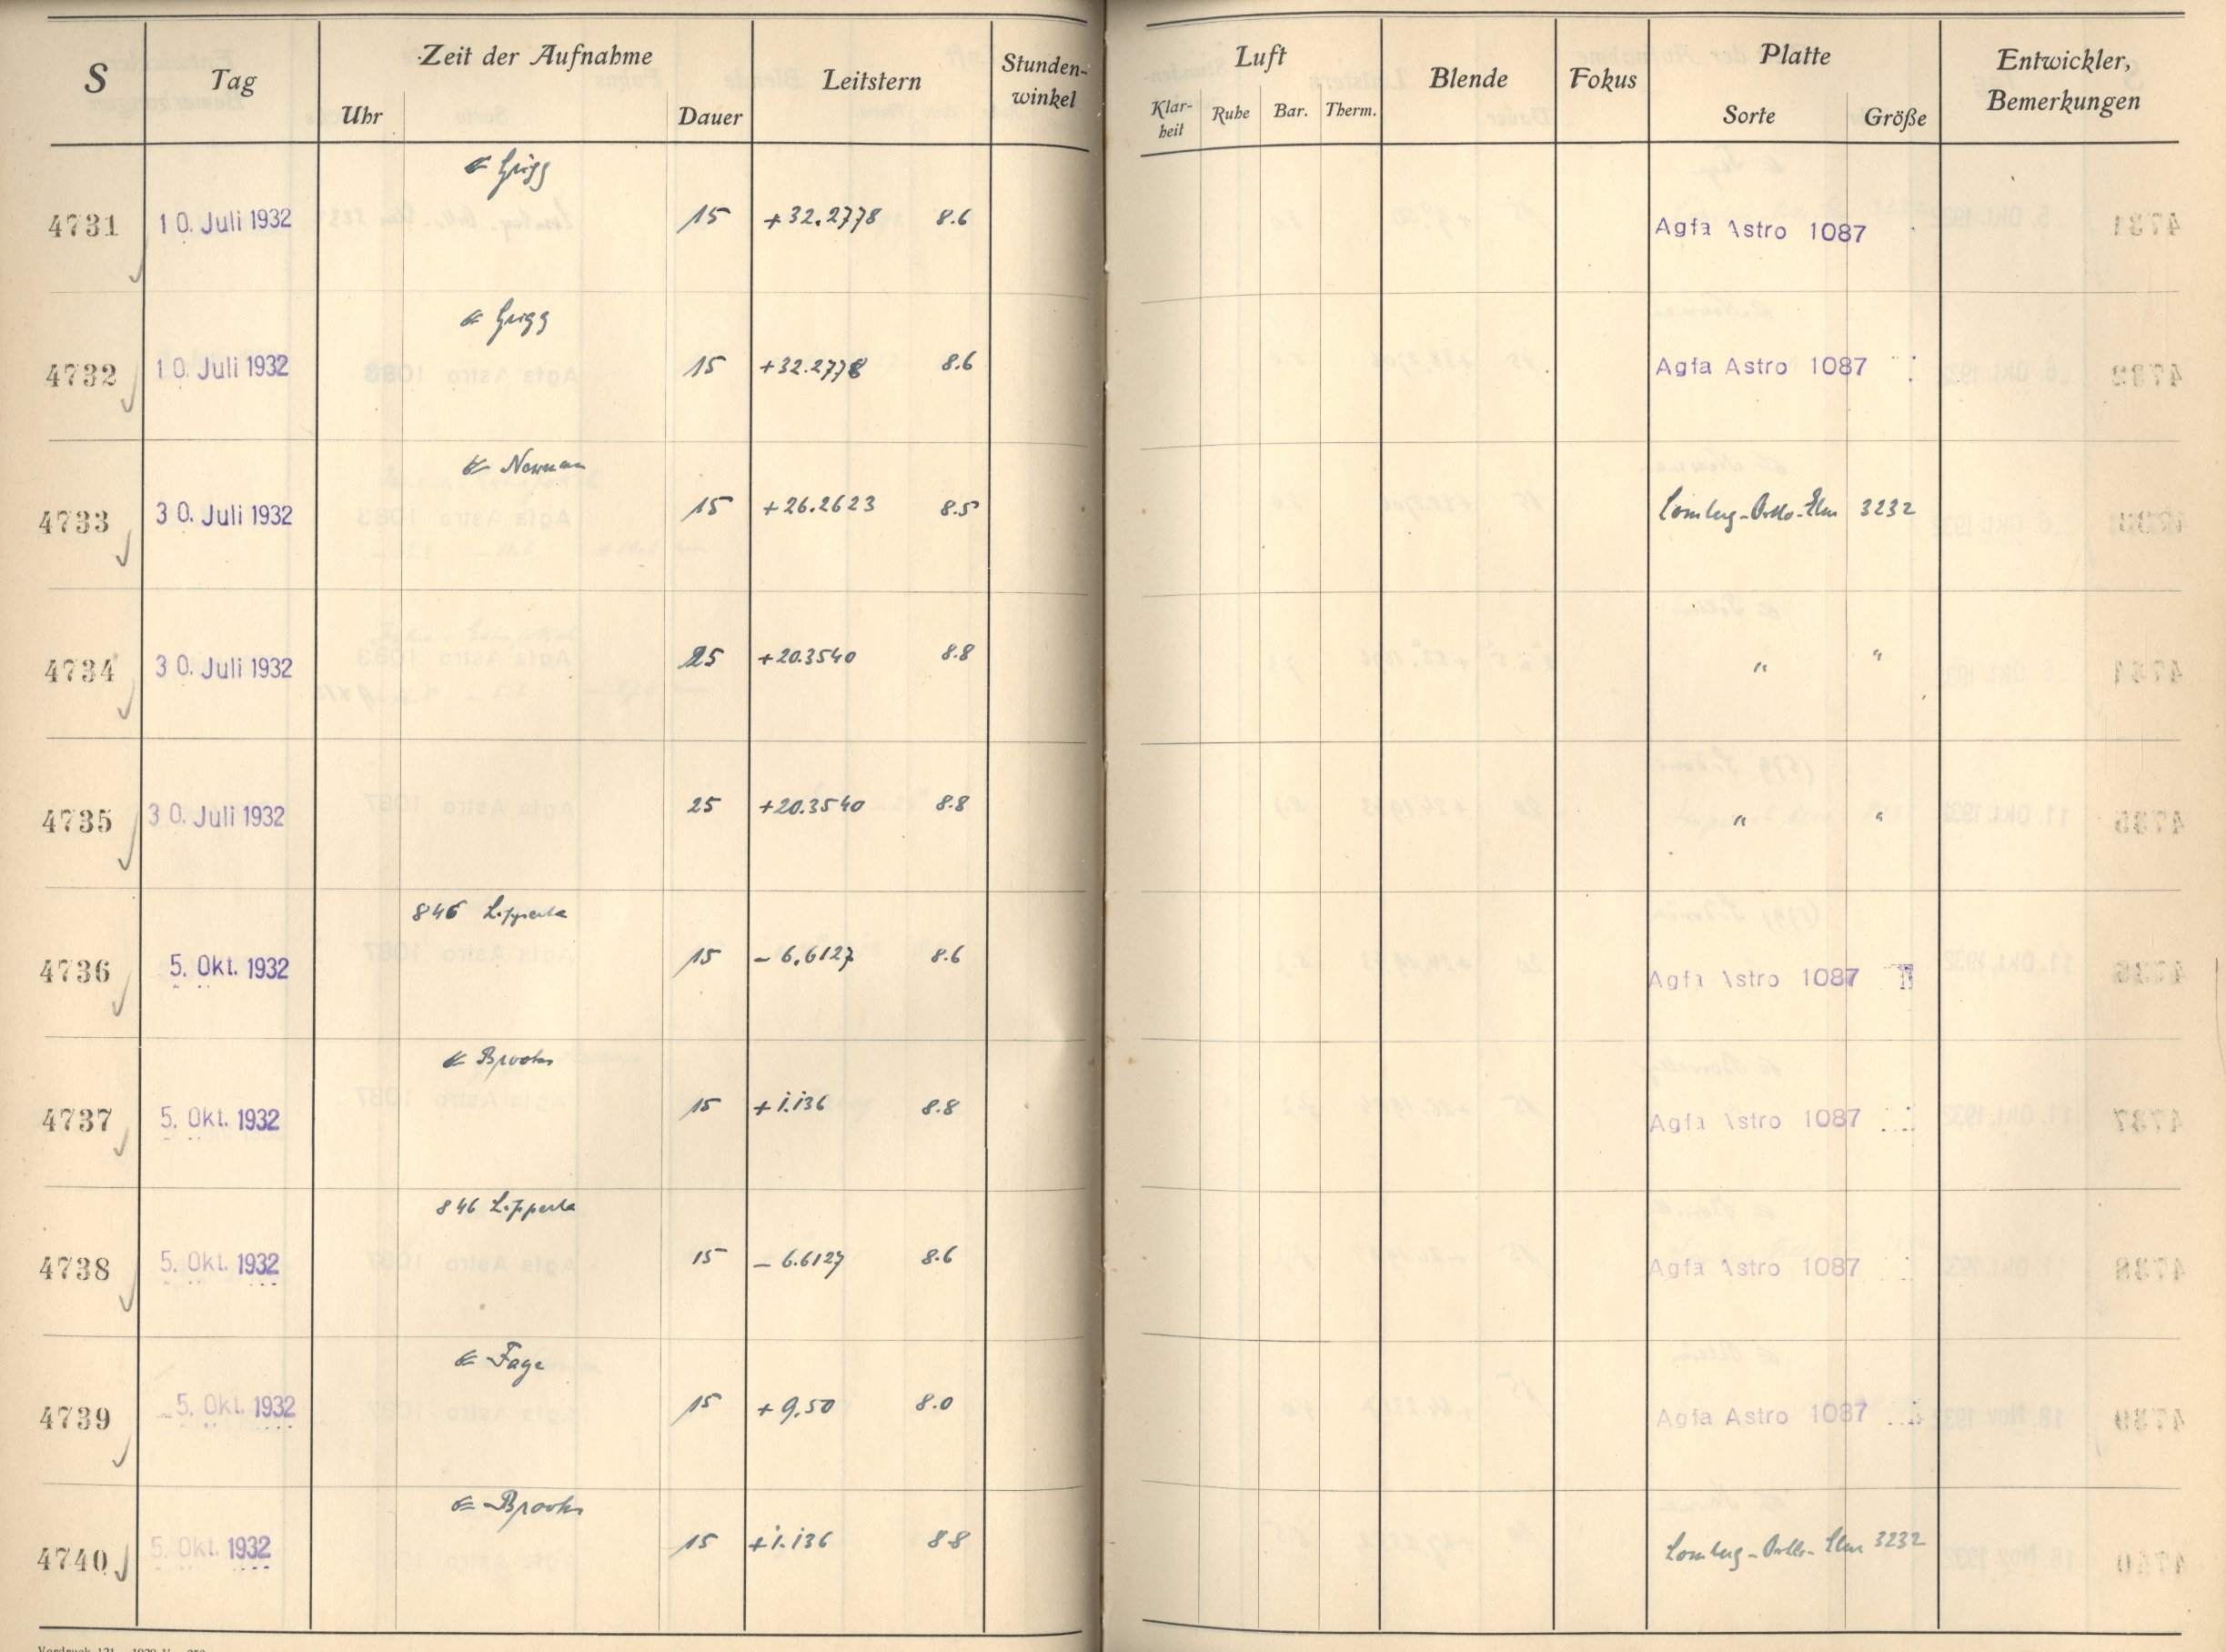 S Tag Zeit der Aufnahme Leitstern Stunden-winkel Luft Blende Fokus Platte Entwickler, Bemerkungen
Uhr Dauer Klar-heit Ruhe Bar. Therm. Sorte Größe
☄ Grigg
4731 10. Juli 1932 15 +32.2778 8.6 Agfa Astro 1087
☄ Grigg
4732 10. Juli 1932 15 +32.2778 8.6 Agfa Astro 1087
☄ Newman
4733 30. Juli 1932 15 +26.2623 8.5 Lomberg-Ortho- 3232
4734 30. Juli 1932 25 +20.3540 8.8 " "
4735 30. Juli 1932 25 +20.3540 8.8 " "
846 Lipperta
4736 5. Okt. 1932 15 - 6.6127 8.6 Agfa Astro 1087
☄ Brooks
4737 5. Okt. 1932 15 +1.136 8.8 Agfa Astro 1087
846 Lipperta
4738 5. Okt. 1932 15 - 6.6127 8.6 Agfa Astro 1087
☄ Faye
4739 5. Okt. 1932 15 +9.50 8.0 Agfa Astro 1087
☄ Brooks
4740 5. Okt. 1932 15 +1.136 8.8 Lomberg-Ortho- 3232